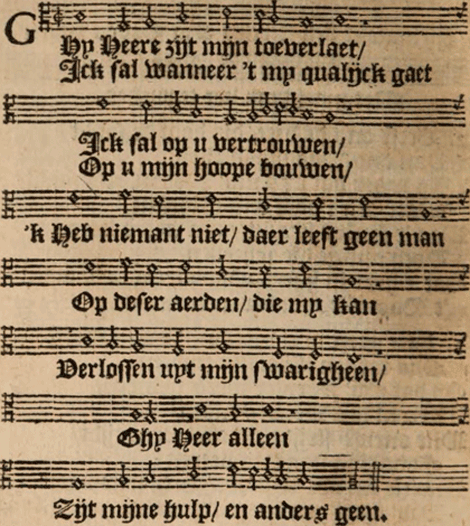 GHy Heere zijt mijn toeverlaet/
Ick sal wanneer 't my qualijck gaet
Ick sal op u vertrouwen/
Op u mijn hoope bouwen/
'k Heb niemant niet/ daer leeft geen man
Op deser aerden/ die my kan
Verlossen uyt mijn swarigheen/
Ghy Heer alleen
Zijt mijne hulp/ en anders geen.